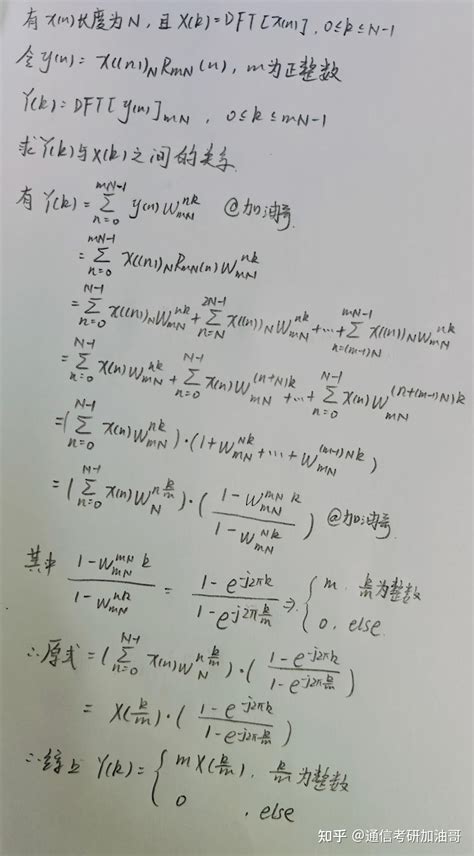 有x(n)长度为N,且X(k)=DFT[x(n)],0≤k≤N-1
令y(n)=x((n))_N R_{mN}(n),m为正整数
Y(k)=DFT[y(n)]_{mN},0≤k≤mN-1
求Y(k)与X(k)之间的关系
有Y(k)=∑_{n=0}^{mN-1} y(n)W_{mN}^{nk} @加油哥
=∑_{n=0}^{mN-1} x((n))_N R_{mN}(n)W_{mN}^{nk}
=∑_{n=0}^{N-1} x((n))_N W_{mN}^{nk}+∑_{n=N}^{2N-1} x((n))_N W_{mN}^{nk}+…+∑_{n=(m-1)N}^{mN-1} x((n))_N W_{mN}^{nk}
=∑_{n=0}^{N-1} x(n)W_{mN}^{nk}+∑_{n=0}^{N-1} x(n)W_{mN}^{(n+N)k}+…+∑_{n=0}^{N-1} x(n)W_{mN}^{(n+(m-1)N)k}
=(∑_{n=0}^{N-1} x(n)W_{mN}^{nk})·(1+W_{mN}^{Nk}+…+W_{mN}^{(m-1)Nk})
=(∑_{n=0}^{N-1} x(n)W_N^{n k/m})·((1-W_{mN}^{mNk})/(1-W_{mN}^{Nk})) @加油哥
其中 (1-W_{mN}^{mNk})/(1-W_{mN}^{Nk})=(1-e^{-j2πk})/(1-e^{-j2π k/m})⇒{m,k/m为整数
0,else
∴原式=(∑_{n=0}^{N-1} x(n)W_N^{n k/m})·((1-e^{-j2πk})/(1-e^{-j2π k/m}))
=X(k/m)·((1-e^{-j2πk})/(1-e^{-j2π k/m}))
∴综上 Y(k)={mX(k/m),k/m为整数
0,else
知乎 @通信考研加油哥